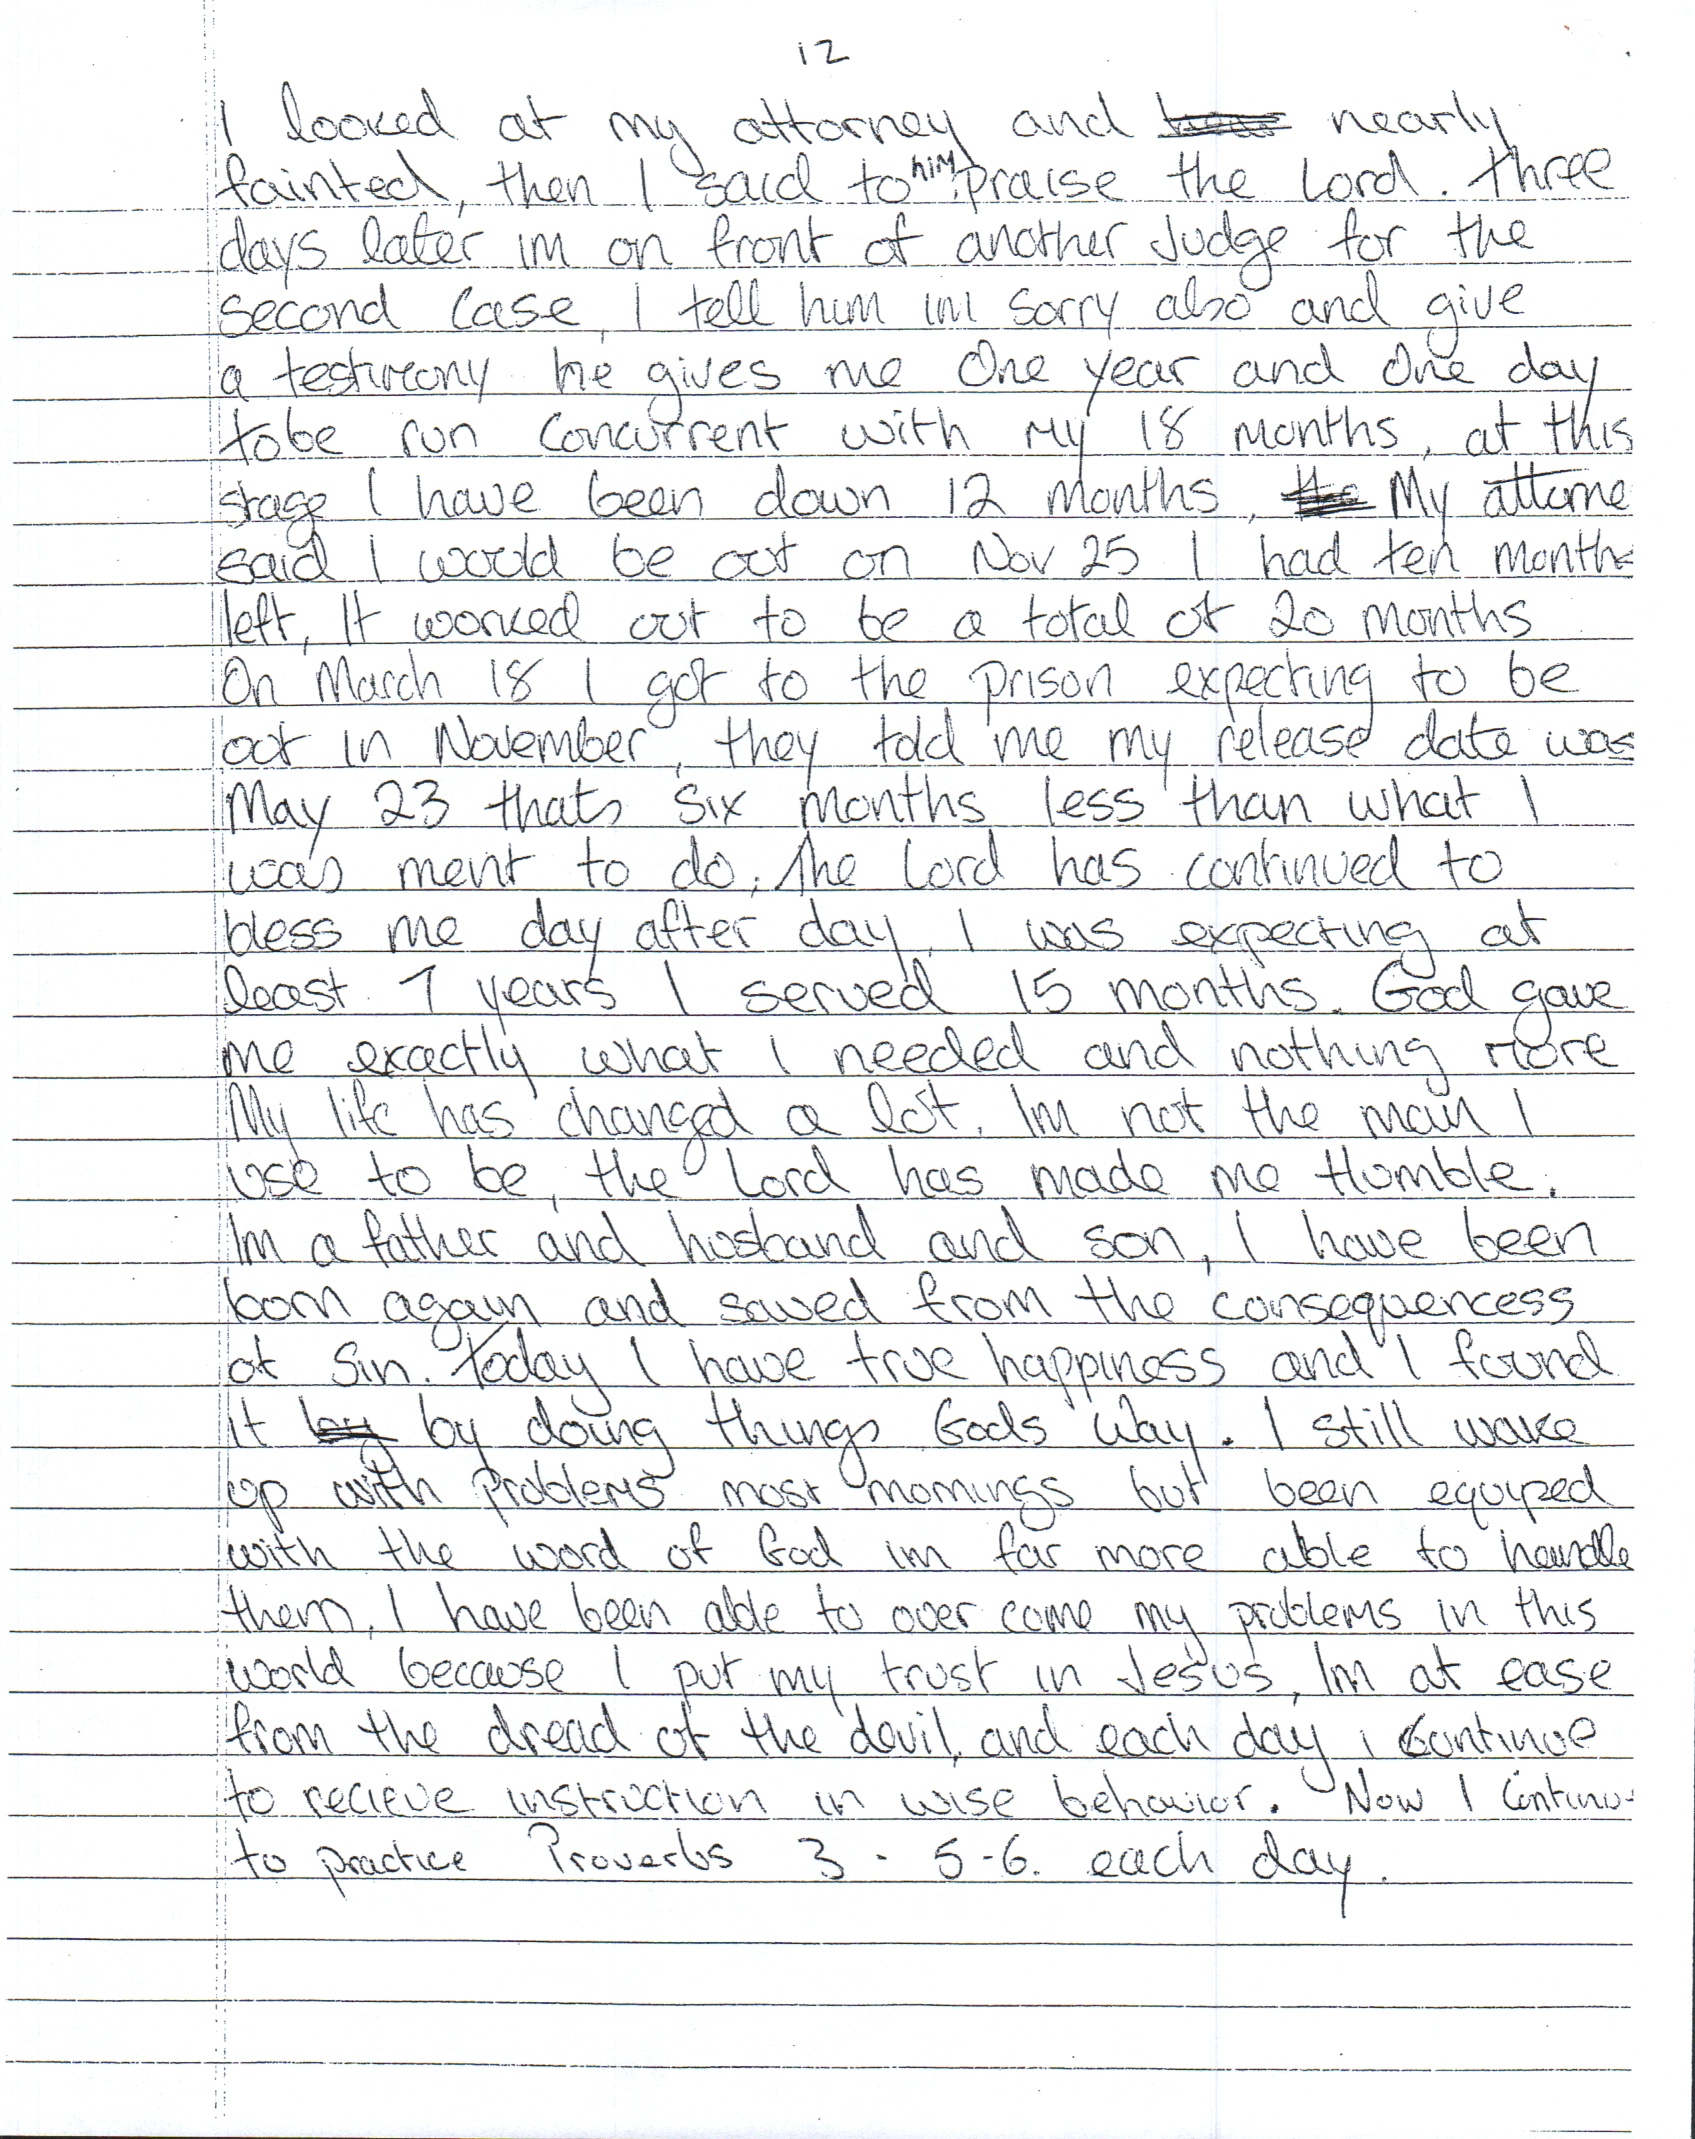 12
I looked at my attorney and nearly
fainted, then I said to him praise the Lord. three
days later im on front of another Judge for the
second case, I tell him im sorry also and give
a testimony he gives me One year and One day
tobe run concurrent with my 18 months, at this
stage I have been down 12 months, My attorne
said I would be out on Nov 25 I had ten months
left, It worked out to be a total of 20 months
On March 18 I got to the prison expecting to be
out in November, they told me my release date was
May 23 thats six months less than what I
was ment to do. The Lord has continued to
bless me day after day, I was expecting at
least 7 years I served 15 months. God gave
me exactly what I needed and nothing more
My life has changed a lot. Im not the man I
use to be, the Lord has made me Humble.
Im a father and husband and son, I have been
born again and saved from the consequencess
of Sin. Today I have true happiness and I found
it by doing things Gods Way. I still wake
up with problems most mornings but been equiped
with the word of God im far more able to handle
them, I have been able to over come my problems in this
world because I put my trust in Jesus, Im at ease
from the dread of the devil, and each day i continue
to recieve instruction in wise behavior. Now I Continu
to practice Proverbs 3 - 5-6. each day.